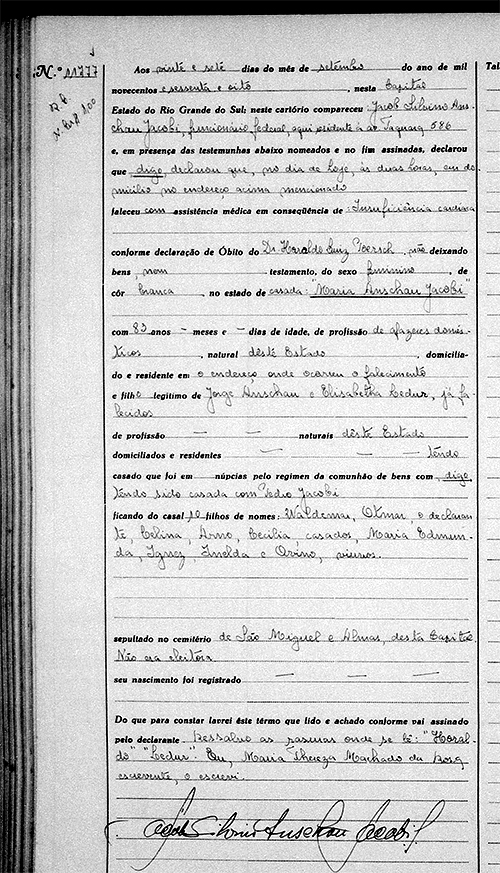 N.º 11777
Tal
Aos vinte e sete dias do mês de setembro do ano de mil
novecentos e sessenta e oito, nesta Capital
Estado do Rio Grande do Sul: neste cartório compareceu: Jacob Silvino Ans-
chau Jacobi, funcionário federal, aqui residente à av. Taquara, 586
e, em presença das testemunhas abaixo nomeados e no fim assinados, declarou
que digo, declarou que, no dia de hoje, às duas horas, em do-
micílio no endereço acima mencionado
faleceu com assistência médica em conseqüência de: Insuficiência cardíaca
conforme declaração de Óbito do Dr. Haroldo Luiz, não deixando
bens, nem testamento, do sexo feminino, de
côr branca, no estado de casada: "Maria Anschau Jacobi"
com 83 anos - meses e - dias de idade, de profissão de afazeres domés-
ticos, natural dêste Estado, domicilia-
do e residente em o endereço onde ocorreu o falecimento
e filha legítimo de Jorge Anschau e Elisabetha Ledur, já fa-
lecidos
de profissão — — naturais dêste Estado
domiciliados e residentes — — — tendo
casado que foi em núpcias pelo regimen da comunhão de bens com digo,
tendo sido casada com Pedro Jacobi
ficando do casal 10 filhos de nomes: Waldemar, Otmar, o declaran-
te, Celina, Arno, Cecilia, casados, Maria Edmun-
da, Ignez, Imelda e Orino, viuvos.
sepultado no cemitério de São Miguel e Almas, desta Capital
Não era eleitora
seu nascimento foi registrado — — —
Do que para constar lavrei êste têrmo que lido e achado conforme vai assinado
pelo declarante. Ressalvo as rasuras onde se lê: "Haral-
do" "Ledur". Eu, Maria Thereza Machado da Rosa
escrevente, o escrevi.
Jacob Silvino Anschau Jacobi